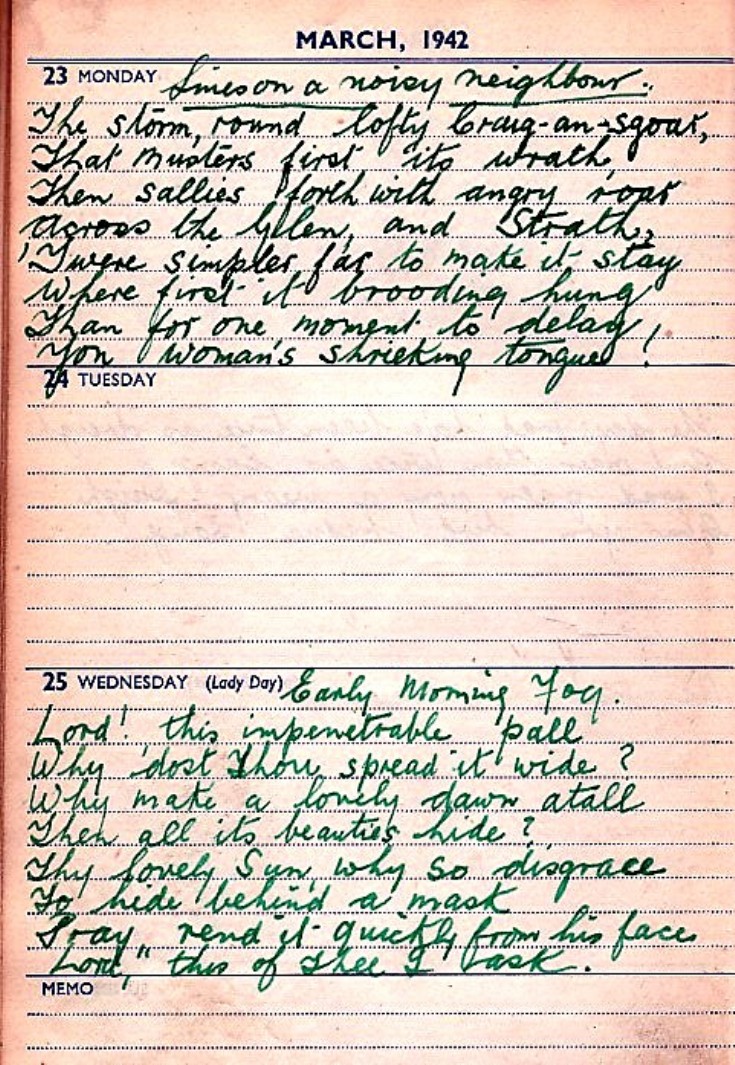 MARCH, 1942
23 MONDAY Lines on a noisy neighbour.:
The storm, round lofty Craig-an-sgoar,
That musters first its wrath,
Then sallies forth with angry roar
Across the Glen, and Strath,
'Twere simpler far to make it stay
Where first it brooding hung
Than for one moment to delay,
Yon woman's shrieking tongue!
24 TUESDAY
25 WEDNESDAY (Lady Day) Early Morning Fog.
Lord! this impenetrable pall
Why dost Thou spread it wide?
Why make a lovely dawn atall
Then all its beauties hide?
Thy lovely Sun, why so disgrace
To hide behind a mask
Pray, rend it quickly from his face
Lord," this of Thee I ask.
MEMO